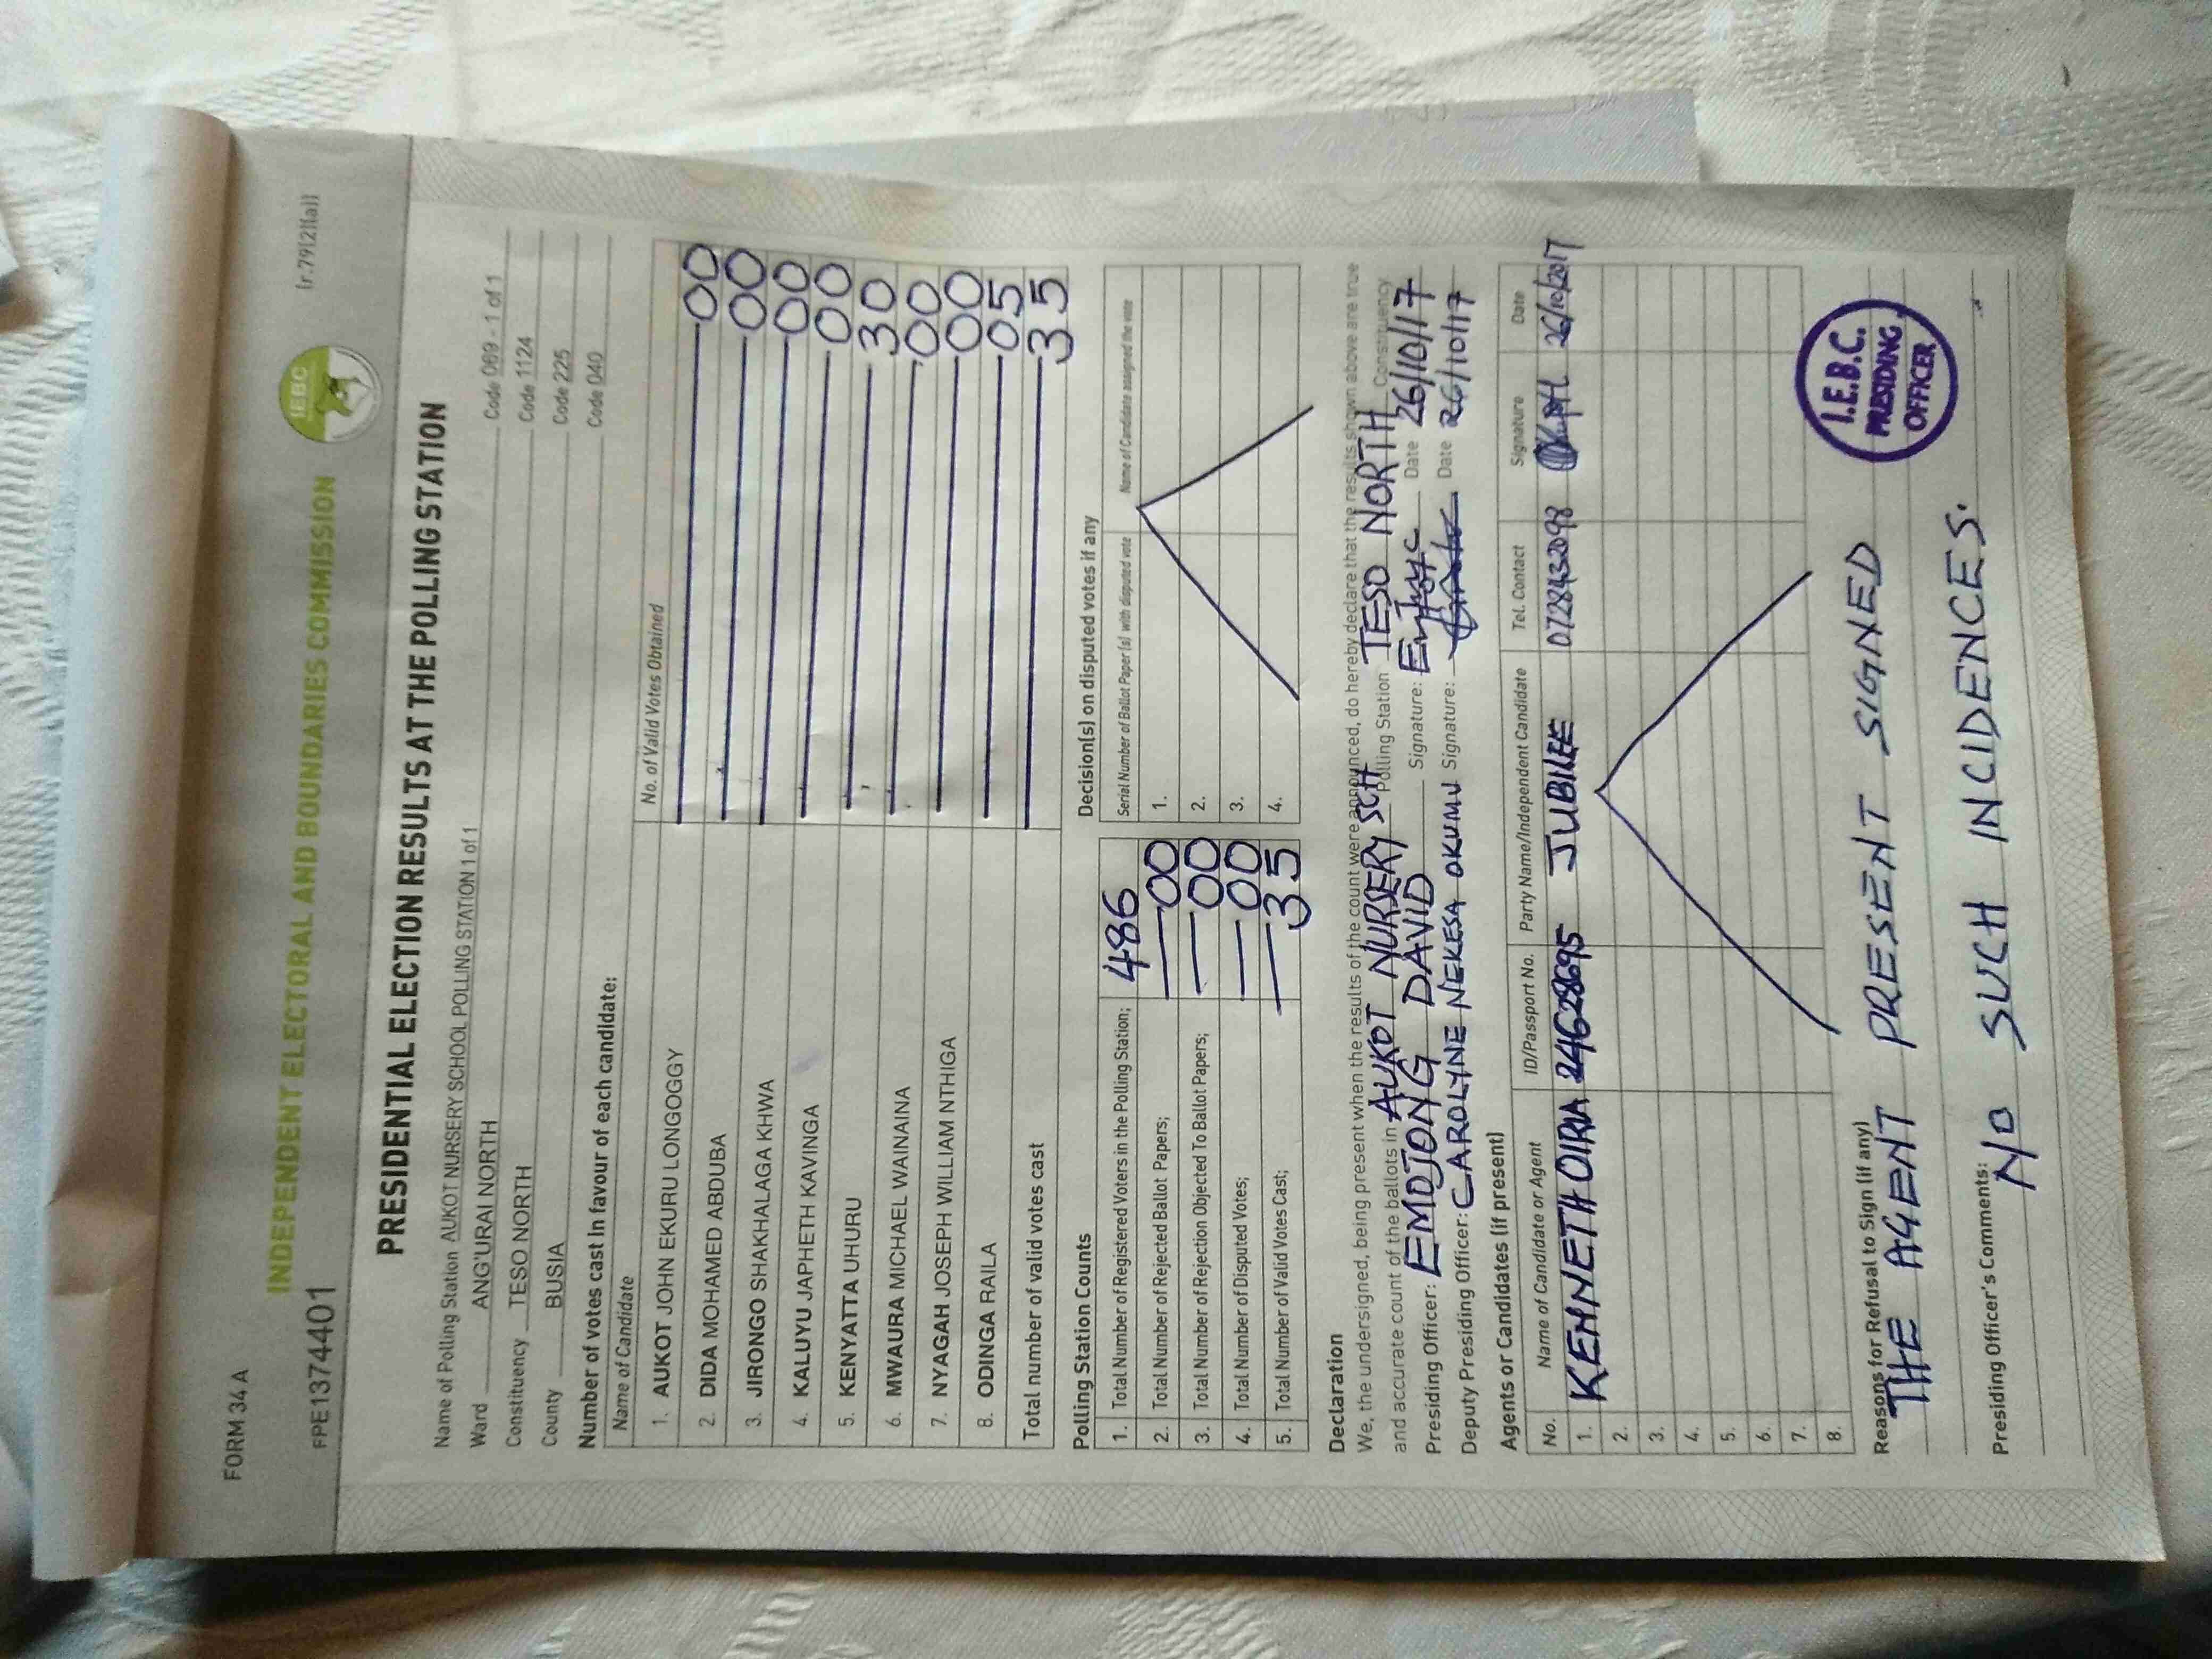 FORM 34 A
(r.79(2)(a))
IEBC
INDEPENDENT ELECTORAL AND BOUNDARIES COMMISSION
FPE1374401
PRESIDENTIAL ELECTION RESULTS AT THE POLLING STATION
Name of Polling Station AUKOT NURSERY SCHOOL POLLING STATION 1 of 1 Code 069 - 1 of 1
Ward ANG'URAI NORTH Code 1124
Constituency TESO NORTH Code 225
County BUSIA Code 040
Number of votes cast in favour of each candidate:
Name of Candidate No. of Valid Votes Obtained
1. AUKOT JOHN EKURU LONGOGGY 00
2. DIDA MOHAMED ABDUBA 00
3. JIRONGO SHAKHALAGA KHWA 00
4. KALUYU JAPHETH KAVINGA 00
5. KENYATTA UHURU 30
6. MWAURA MICHAEL WAINAINA 00
7. NYAGAH JOSEPH WILLIAM NTHIGA 00
8. ODINGA RAILA 05
Total number of valid votes cast 35
Polling Station Counts
1. Total Number of Registered Voters in the Polling Station; 486
2. Total Number of Rejected Ballot Papers; 00
3. Total Number of Rejection Objected To Ballot Papers; 00
4. Total Number of Disputed Votes; 00
5. Total Number of Valid Votes Cast; 35
Decision(s) on disputed votes if any
Serial Number of Ballot Paper (s) with disputed vote Name of Candidate assigned the vote
1.
2.
3.
4.
Declaration
We, the undersigned, being present when the results of the count were announced, do hereby declare that the results shown above are true
and accurate count of the ballots in AUKOT NURSERY SCH Polling Station TESO NORTH Constituency
Presiding Officer: EMOJONG DAVID Signature: Date 26/10/17
Deputy Presiding Officer: CAROLYNE NEKESA OKUMU Signature: Date 26/10/17
Agents or Candidates (if present)
No. Name of Candidate or Agent ID/Passport No. Party Name/Independent Candidate Tel. Contact Signature Date
1. KENNETH OIRIA 24628695 JUBILEE 0728432098 26/10/2017
2.
3.
4.
5.
6.
7.
8.
Reasons for Refusal to Sign (if any)
THE AGENT PRESENT SIGNED
I.E.B.C.
PRESIDING
OFFICER
Presiding Officer's Comments:
NO SUCH INCIDENCES.